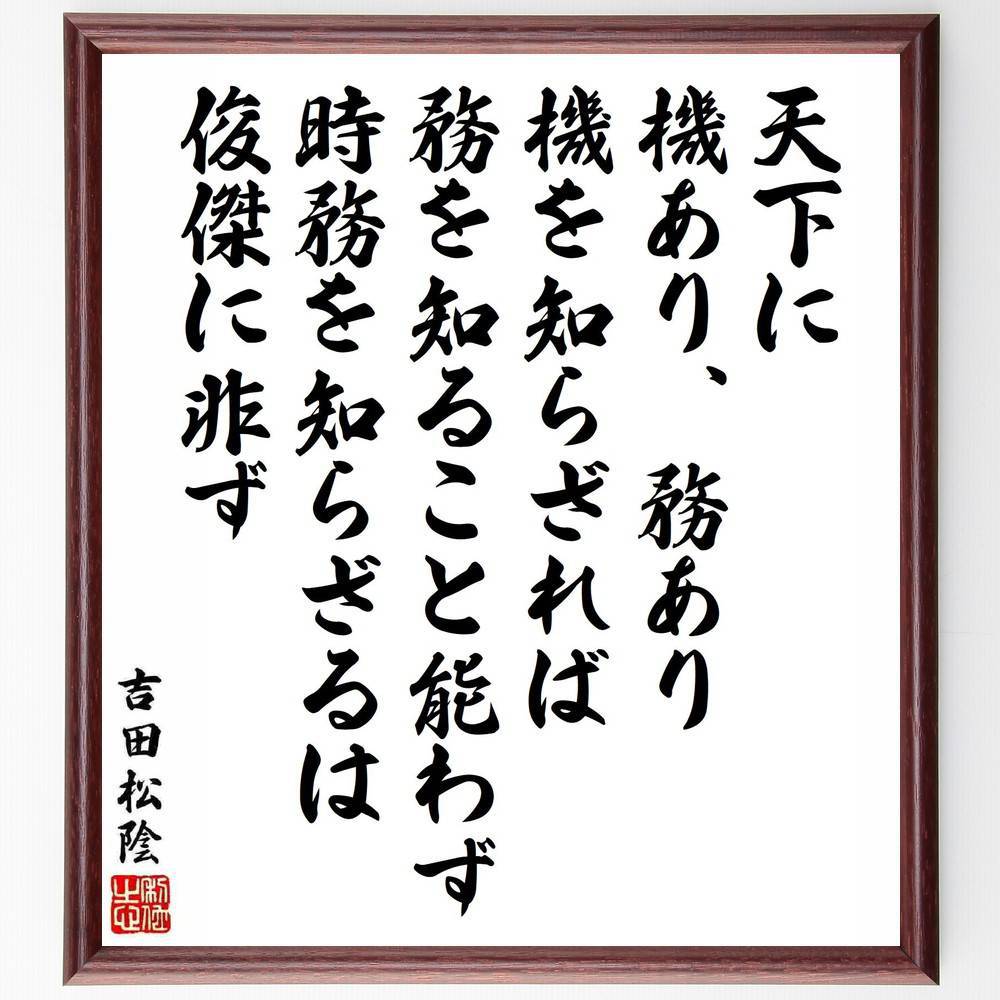 天下に
機あり、務あり
機を知らざれば
務を知ること能わず
時務を知らざるは
俊傑に非ず
吉田松陰